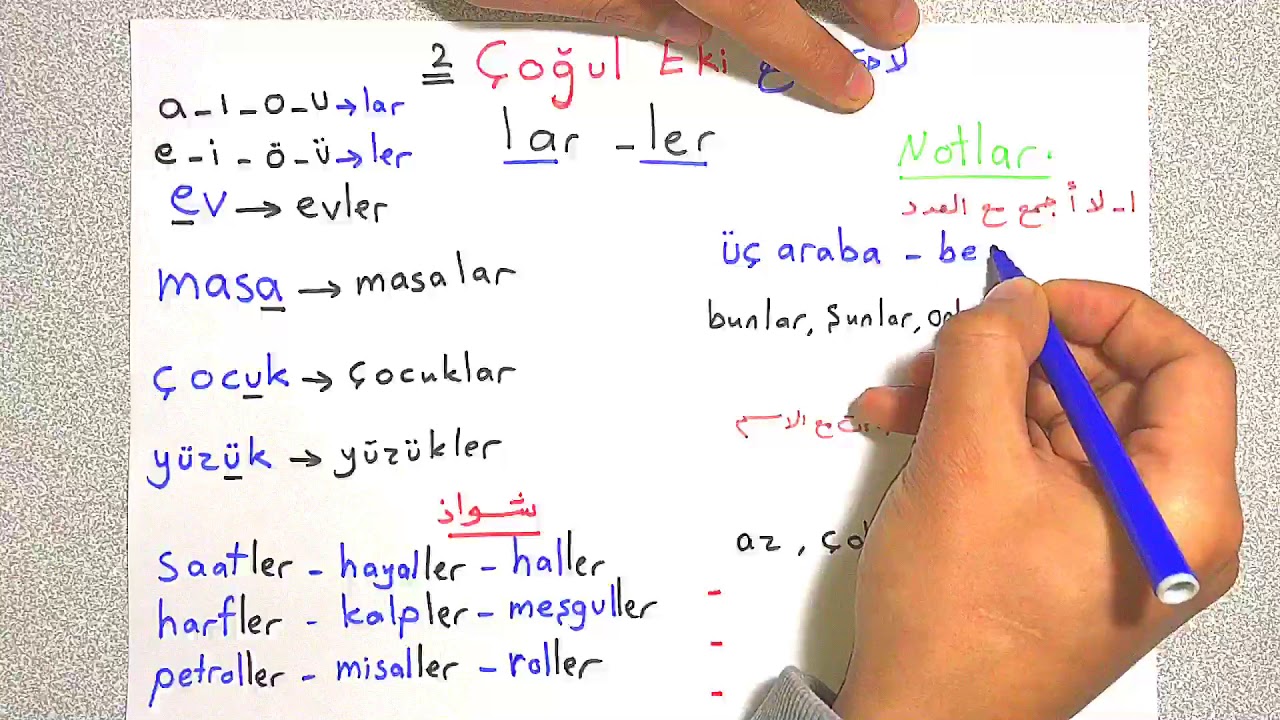 2 Çoğul Eki
a - ı - o - u → lar
lar - ler
e - i - ö - ü → ler
ev → evler
masa → masalar
çocuk → çocuklar
yüzük → yüzükler
شواذ
saatler - hayaller - haller
harfler - kalpler - meşguller
petroller - misaller - roller
Notlar.
١- لا أجمع مع العدد
üç araba - be
bunlar, şunlar,
مع الاسم
az ,
-
-
-